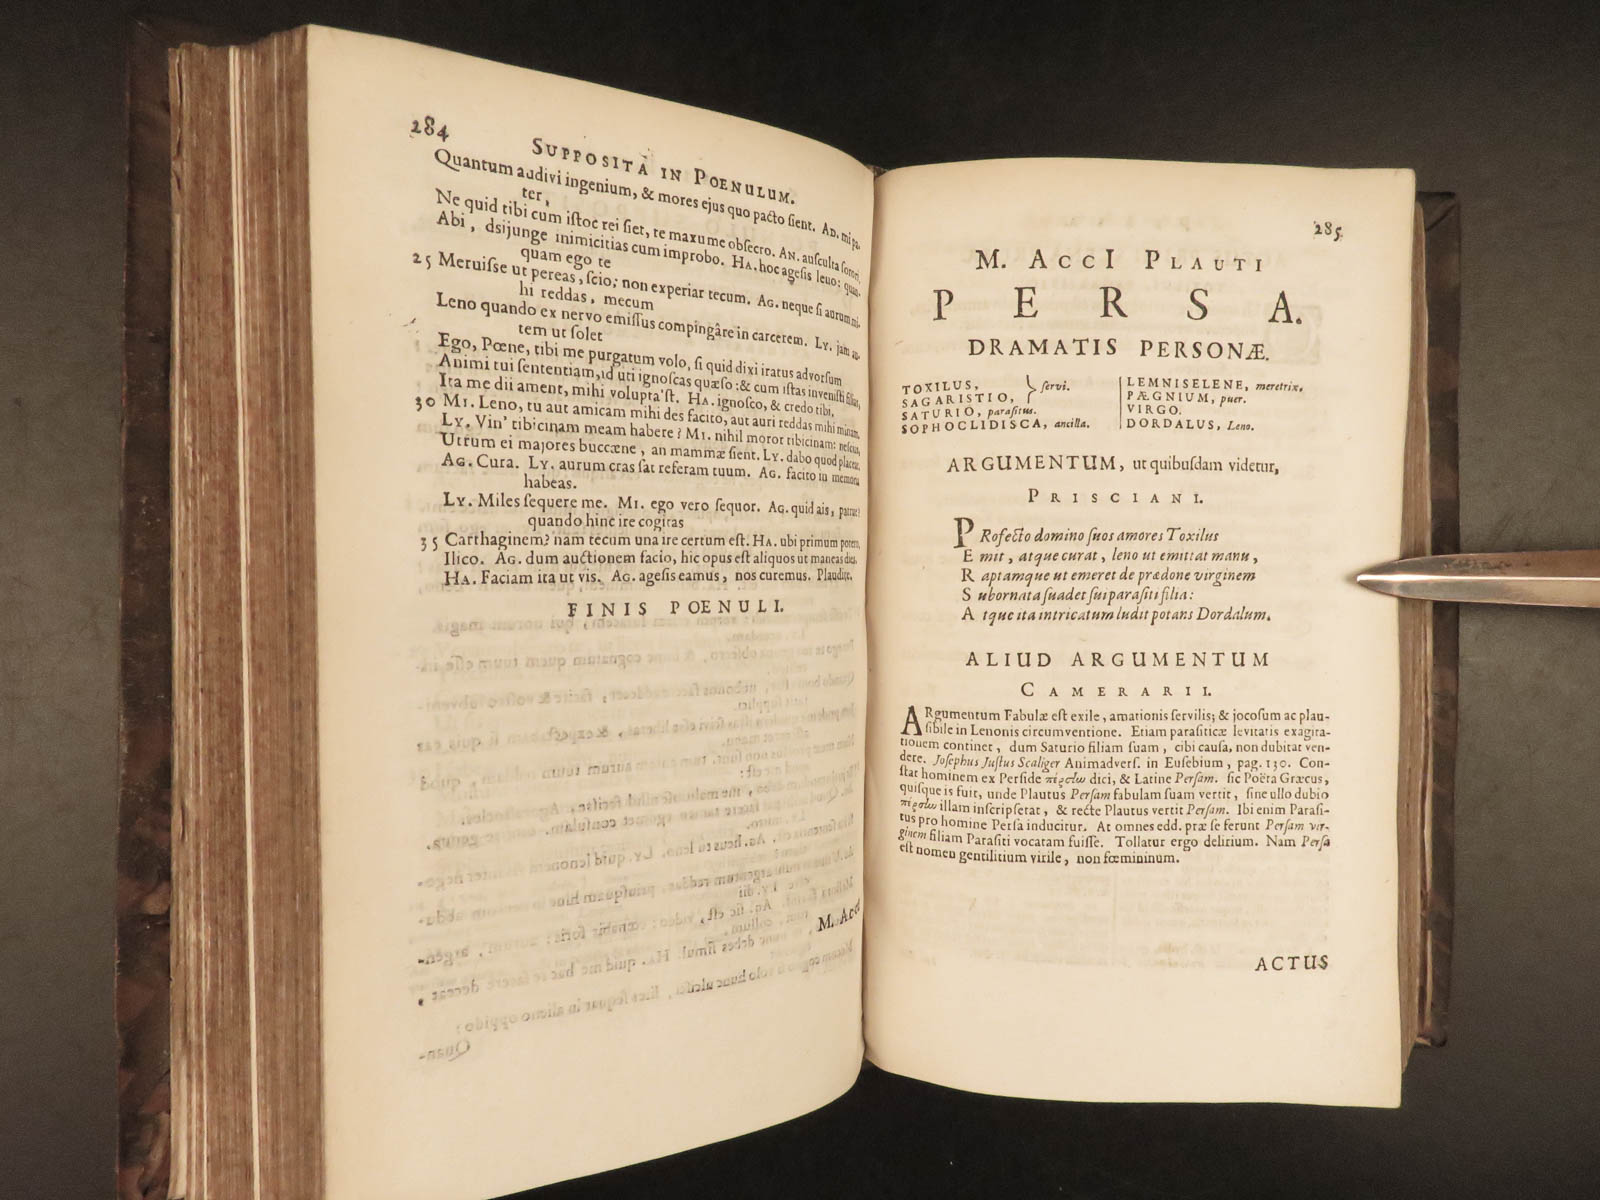 284
SUPPOSITA IN POENULUM.
Quantum audivi ingenium, & mores ejus quo pacto sient. AD. mi pa-
ter,
Ne quid tibi cum istoc rei siet, te maxume obsecro. AN. ausculta sorori,
Abi, dsijunge inimicitias cum improbo. HA. hoc agesis leno: quan-
quam ego te
25 Meruisse ut pereas, scio; non experiar tecum. AG. neque si aurum mi-
hi reddas, mecum
Leno quando ex nervo emissus compingâre in carcerem. LY. jam au-
tem ut solet
Ego, Pœne, tibi me purgatum volo, si quid dixi iratus advorsum
Animi tui sententiam, id uti ignoscas quæso: & cum istas invenisti filias,
Ita me dii ament, mihi volupta'st. HA. ignosco, & credo tibi.
30 MI. Leno, tu aut amicam mihi des facito, aut auri reddas mihi minam.
LY. Vin' tibicinam meam habere? MI. nihil moror tibicinam: nescias,
Utrum ei majores buccæne, an mammæ sient. LY. dabo quod placeat.
AG. Cura. LY. aurum cras sat referam tuum. AG. facito in memoria
habeas.
LY. Miles sequere me. MI. ego vero sequor. AG. quid ais, patrue?
quando hinc ire cogitas
35 Carthaginem? nam tecum una ire certum est. HA. ubi primum potero,
Ilico. AG. dum auctionem facio, hic opus est aliquos ut maneas dies.
HA. Faciam ita ut vis. AG. agesis eamus, nos curemus. Plaudite.
FINIS POENULI.
M. Acci
285
M. ACCI PLAUTI
PERSA.
DRAMATIS PERSONÆ.
TOXILUS,
SAGARISTIO, } servi.
SATURIO, parasitus.
SOPHOCLIDISCA, ancilla.
LEMNISELENE, meretrix.
PÆGNIUM, puer.
VIRGO.
DORDALUS, Leno.
ARGUMENTUM, ut quibusdam videtur,
PRISCIANI.
PRofecto domino suos amores Toxilus
E mit, atque curat, leno ut emittat manu,
R aptamque ut emeret de prædone virginem
S ubornata suadet sui parasiti filia:
A tque ita intricatum ludit potans Dordalum.
ALIUD ARGUMENTUM
CAMERARII.
ARgumentum Fabulæ est exile, amationis servilis; & jocosum ac plau-
sibile in Lenonis circumventione. Etiam parasiticæ levitatis exagita-
tionem continet, dum Saturio filiam suam, cibi causa, non dubitat ven-
dere. Josephus Justus Scaliger Animadvers. in Eusebium, pag. 130. Con-
stat hominem ex Perside πέρσαν dici, & Latine Persam. sic Poëta Græcus,
quisque is fuit, unde Plautus Persam fabulam suam vertit, sine ullo dubio
πέρσαν illam inscripserat, & recte Plautus vertit Persam. Ibi enim Parasi-
tus pro homine Persa inducitur. At omnes edd. præ se ferunt Persam vir-
ginem filiam Parasiti vocatam fuisse. Tollatur ergo delirium. Nam Persa
est nomen gentilitium virile, non fœmininum.
ACTUS